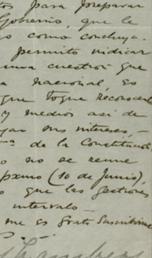 os para preparar
Gobierno, que le
o como concluya.
permito indicar
una cuestión que
a nacional, es
que toque
y medios así de
sus intereses,
de la Constitución
no se reune
pxmo (10 de Junio),
que las gestiones
intervalo
me es grato suscribirme